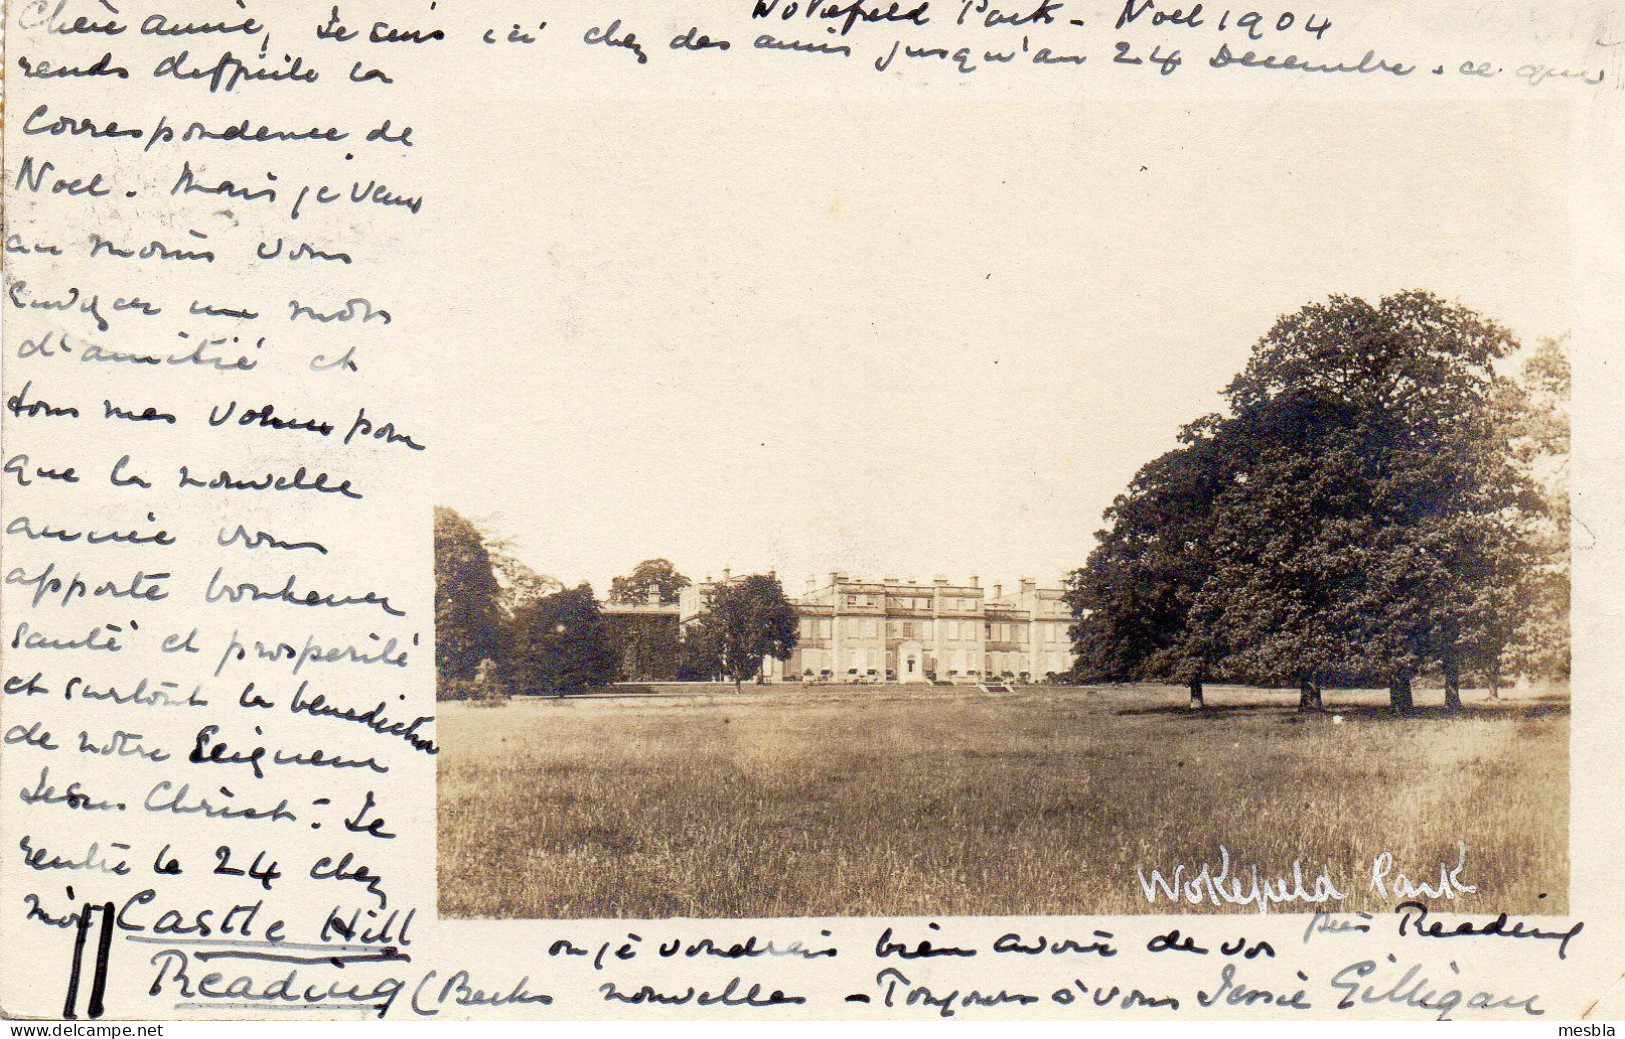 Wokefield Park - Noel 1904
Chère amie, Je suis ici chez des amis jusqu'au 24 Decembre. ce qui
rends difficile la
Correspondence de
Noel. Mais je veux
au moins vous
envoyer un mots
d'amitié et
tous mes voeux pour
que la nouvelle
année vous
apporte bonheur
santé et prosperité
et surtout la benediction
de notre Seigneur
Jesus Christ. Je
rentre le 24 chez
moi Castle Hill
Reading (Berks
Wokefield Park
près Reading
ou je voudrais bien avoir de vos
nouvelles - Toujours à vous Jessie Gilligan
mesbla